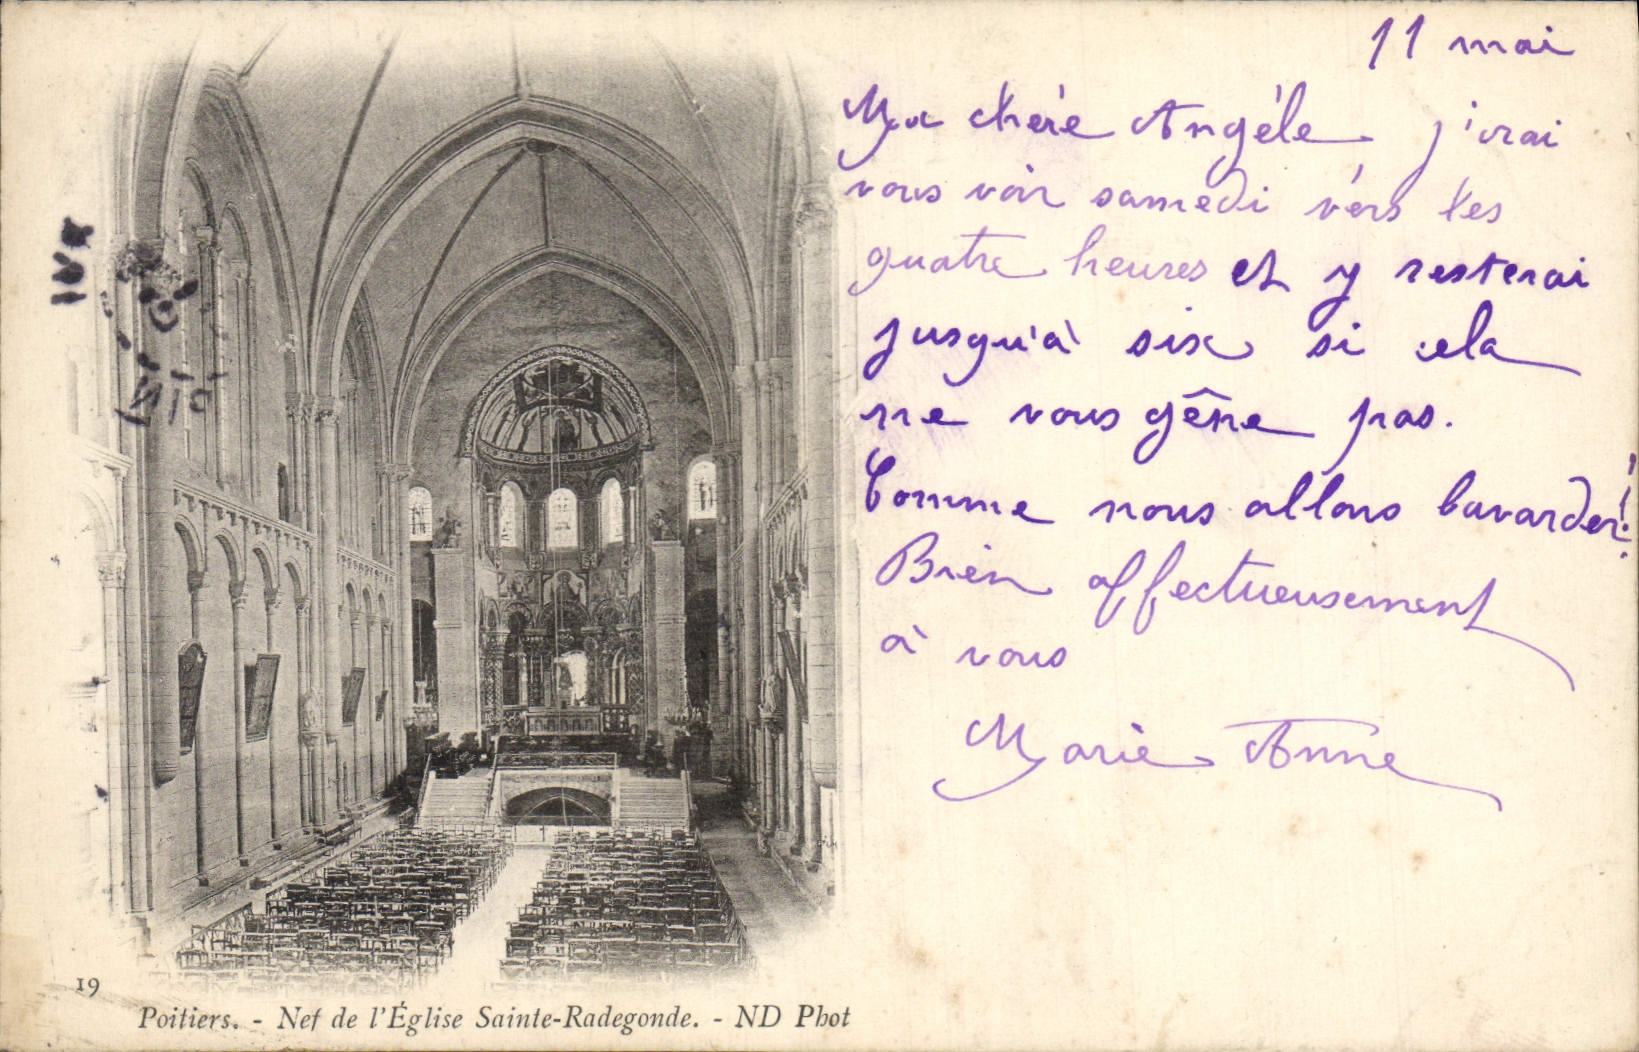 11 mai
Ma chère Angèle j'irai
vous voir samedi vers les
quatre heures et y resterai
jusqu'à six si cela
ne vous gêne pas.
Comme nous allons bavarder!!
Bien affectueusement
à vous
Marie-Anne
19
Poitiers. - Nef de l'Église Sainte-Radegonde. - ND Phot